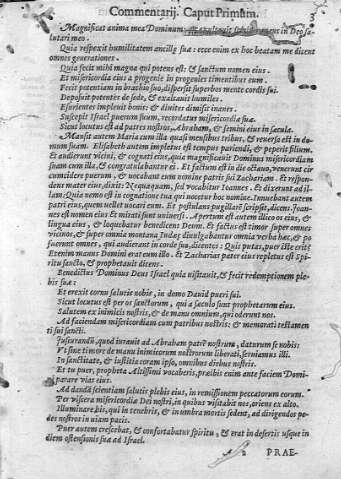 Commentarij. Caput Primum. 3
Magnificat anima mea Dominum, in Deo sa-
lutari meo:
Quia respexit humilitatem ancillę suæ: ecce enim ex hoc beatam me dicent
omnes generationes.
Quia fecit mihi magna qui potens est: & sanctum nomen eius.
Et misericordia eius a progenie in progenies timentibus eum.
Fecit potentiam in brachio suo, dispersit superbos mente cordis sui.
Deposuit potentes de sede, & exaltauit humiles.
Esurientes impleuit bonis: & diuites dimisit inanes.
Suscepit Israel puerum suum, recordatus misericordiæ suæ.
Sicut locutus est ad patres nostros, Abraham, & semini eius in sæcula.
Mansit autem Maria cum illa quasi mensibus tribus, & reuersa est in do-
mum suam. Elisabeth autem impletum est tempus pariendi, & peperit filium.
Et audierunt vicini, & cognati eius, quia magnificauit Dominus misericordiam
suam cum illa, & congratulabantur ei. Et factum est in die octauo, venerunt cir
cumcidere puerum, & vocabant eum nomine patris sui Zachariam. Et respon-
dens mater eius, dixit: Nequaquam, sed vocabitur Ioannes. Et dixerunt ad il-
lam: Quia nemo est in cognatione tua qui vocetur hoc nomine. Innuebant autem
patri eius, quem vellet vocari eum. Et postulans pugillarē scripsit, dicens, Ioan-
nes est nomen eius Et mirati sunt vniuersi. Apertum est autem illico os eius, &
lingua eius, & loquebatur benedicens Deum. Et factus est timor super omnes
vicinos, & super omnia montana Iudeę diuulgabantur omnia verba hæc, & po
suerunt omnes, qui audierant in corde suo, dicentes: Quis putas, puer iste erit?
Etenim manus Domini erat cum illo. Et Zacharias pater eius repletus est Spi-
ritu sancto, & prophetauit dicens.
Benedictus Dominus Deus Israel quia visitauit, & fecit redemptionem ple-
bis suæ:
Et erexit cornu salutis nobis, in domo Dauid pueri sui.
Sicut locutus est per os sanctorum, qui a sæculo sunt prophetarum eius.
Salutem ex inimicis nostris, & de manu omnium, qui oderunt nos.
Ad faciendam misericordiam cum patribus nostris: & memorari testamen
ti sui sancti.
Iusiurandū, quod iurauit ad Abraham patrē nostrum, daturum se nobis:
Vt sine timore de manu inimicorum nostrorum liberati, seruiamus illi.
In sanctitate, & iustitia coram ipso, omnibus diebus nostris.
Et tu puer, propheta Altissimi vocaberis, præibis enim ante faciem Domi-
parare vias eius.
Ad dandā scientiam salutis plebis eius, in remissionem peccatorum eorum.
Per viscera misericordiæ Dei nostri, in quibus visitabit nos, oriens ex alto.
Illuminare his, qui in tenebris, & in vmbra mortis sedent, ad dirigendos pe
des nostros in viam pacis.
Puer autem crescebat, & confortabatur spiritu, & erat in desertis vsque in
diem ostensionis suæ ad Israel.
PRAE-